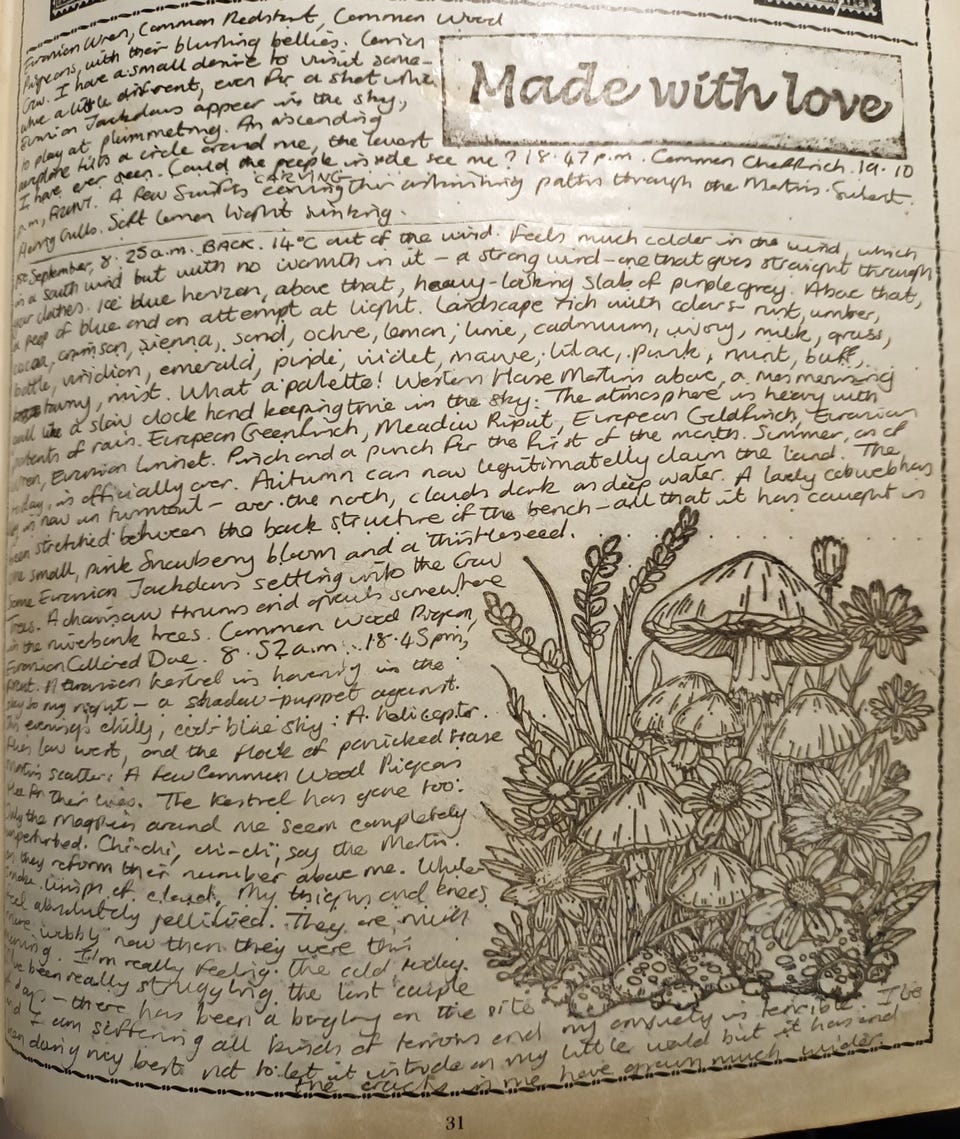 Eurasian Wren, Common Redstart, Common Wood
Pigeons, with their blushing bellies. Carrion
Crow. I have a small desire to visit some-
where a little different, even for a short while.
Eurasian Jackdaws appear in the sky,
to play at plummeting. An ascending
airplane tilts a circle around me, the lowest
I have ever seen. Could the people inside see me? 18.47 p.m. Common Chaffinch. 19.10
p.m, FRONT. A few Swifts CARVING their astonishing paths through the Martins. Subert.
Herring Gulls. Soft lemon light sinking.
Made with love
1st September, 8.25 a.m. BACK. 14°C out of the wind. Feels much colder in the wind, which
is a south wind but with no warmth in it – a strong wind – one that goes straight through
your clothes. Ice blue horizon, above that, heavy-looking slabs of purple grey. Above that,
a peep of blue and an attempt at light. Landscape rich with colors – rust, umber,
cocoa, crimson, sienna, sand, ochre, lemon, lime, cadmium, ivory, milk, grass,
bottle, viridian, emerald, purple, violet, mauve, lilac, pink, mint, buff,
tawny, mist. What a palette! Western House Martins above, a mesmerising
like a slow clock hand keeping time in the sky. The atmosphere is heavy with
of rain. European Greenfinch, Meadow Pipit, European Goldfinch, Eurasian
Wren, Eurasian Linnet. Pinch and a punch for the first of the month. Summer, as of
today, is officially over. Autumn can now legitimatelly claim the land. The
is now in turmoil – over the north, clouds dark as deep water. A lacey cobweb has
been stretched between the back structure of the bench – all that it has caught is
one small, pink Snowberry bloom and a thistleseed.
Some Eurasian Jackdaws settling into the Crow
Trees. A chainsaw thrums and growls somewhere
in the riverbank trees. Common Wood Pigeon,
Eurasian Collared Dove. 8.52 a.m. 18.45 pm,
FRONT. A Eurasian Kestrel is hovering in the
sky to my right – a shadow-puppet against
this evening's chilly, cool blue sky. A helicopter
flies low west, and the flock of panicked House
Martins scatter. A few Common Wood Pigeons
flee for their lives. The Kestrel has gone too.
Only the magpies around me seem completely
unperturbed. Chi-chi, chi-chi, say the Martins.
as they reform their number above me. White
smoke wisps of cloud. My thighs and knees
feel absolutely jellified. They are much
more wobbly now than they were this
morning. I'm really feeling the cold today.
I've been really struggling the last couple
of days – there has been a burglary on the site
and I am suffering all kinds of terrors and my anxiety is terrible. I've
been doing my best not to let it intrude on my little world but it has and
the cracks in me have grown much wider.
31